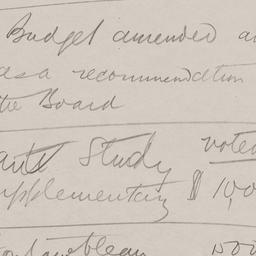 Budget amended a
as a recommendation
the Board
Study voted
supplementary $ 10,0